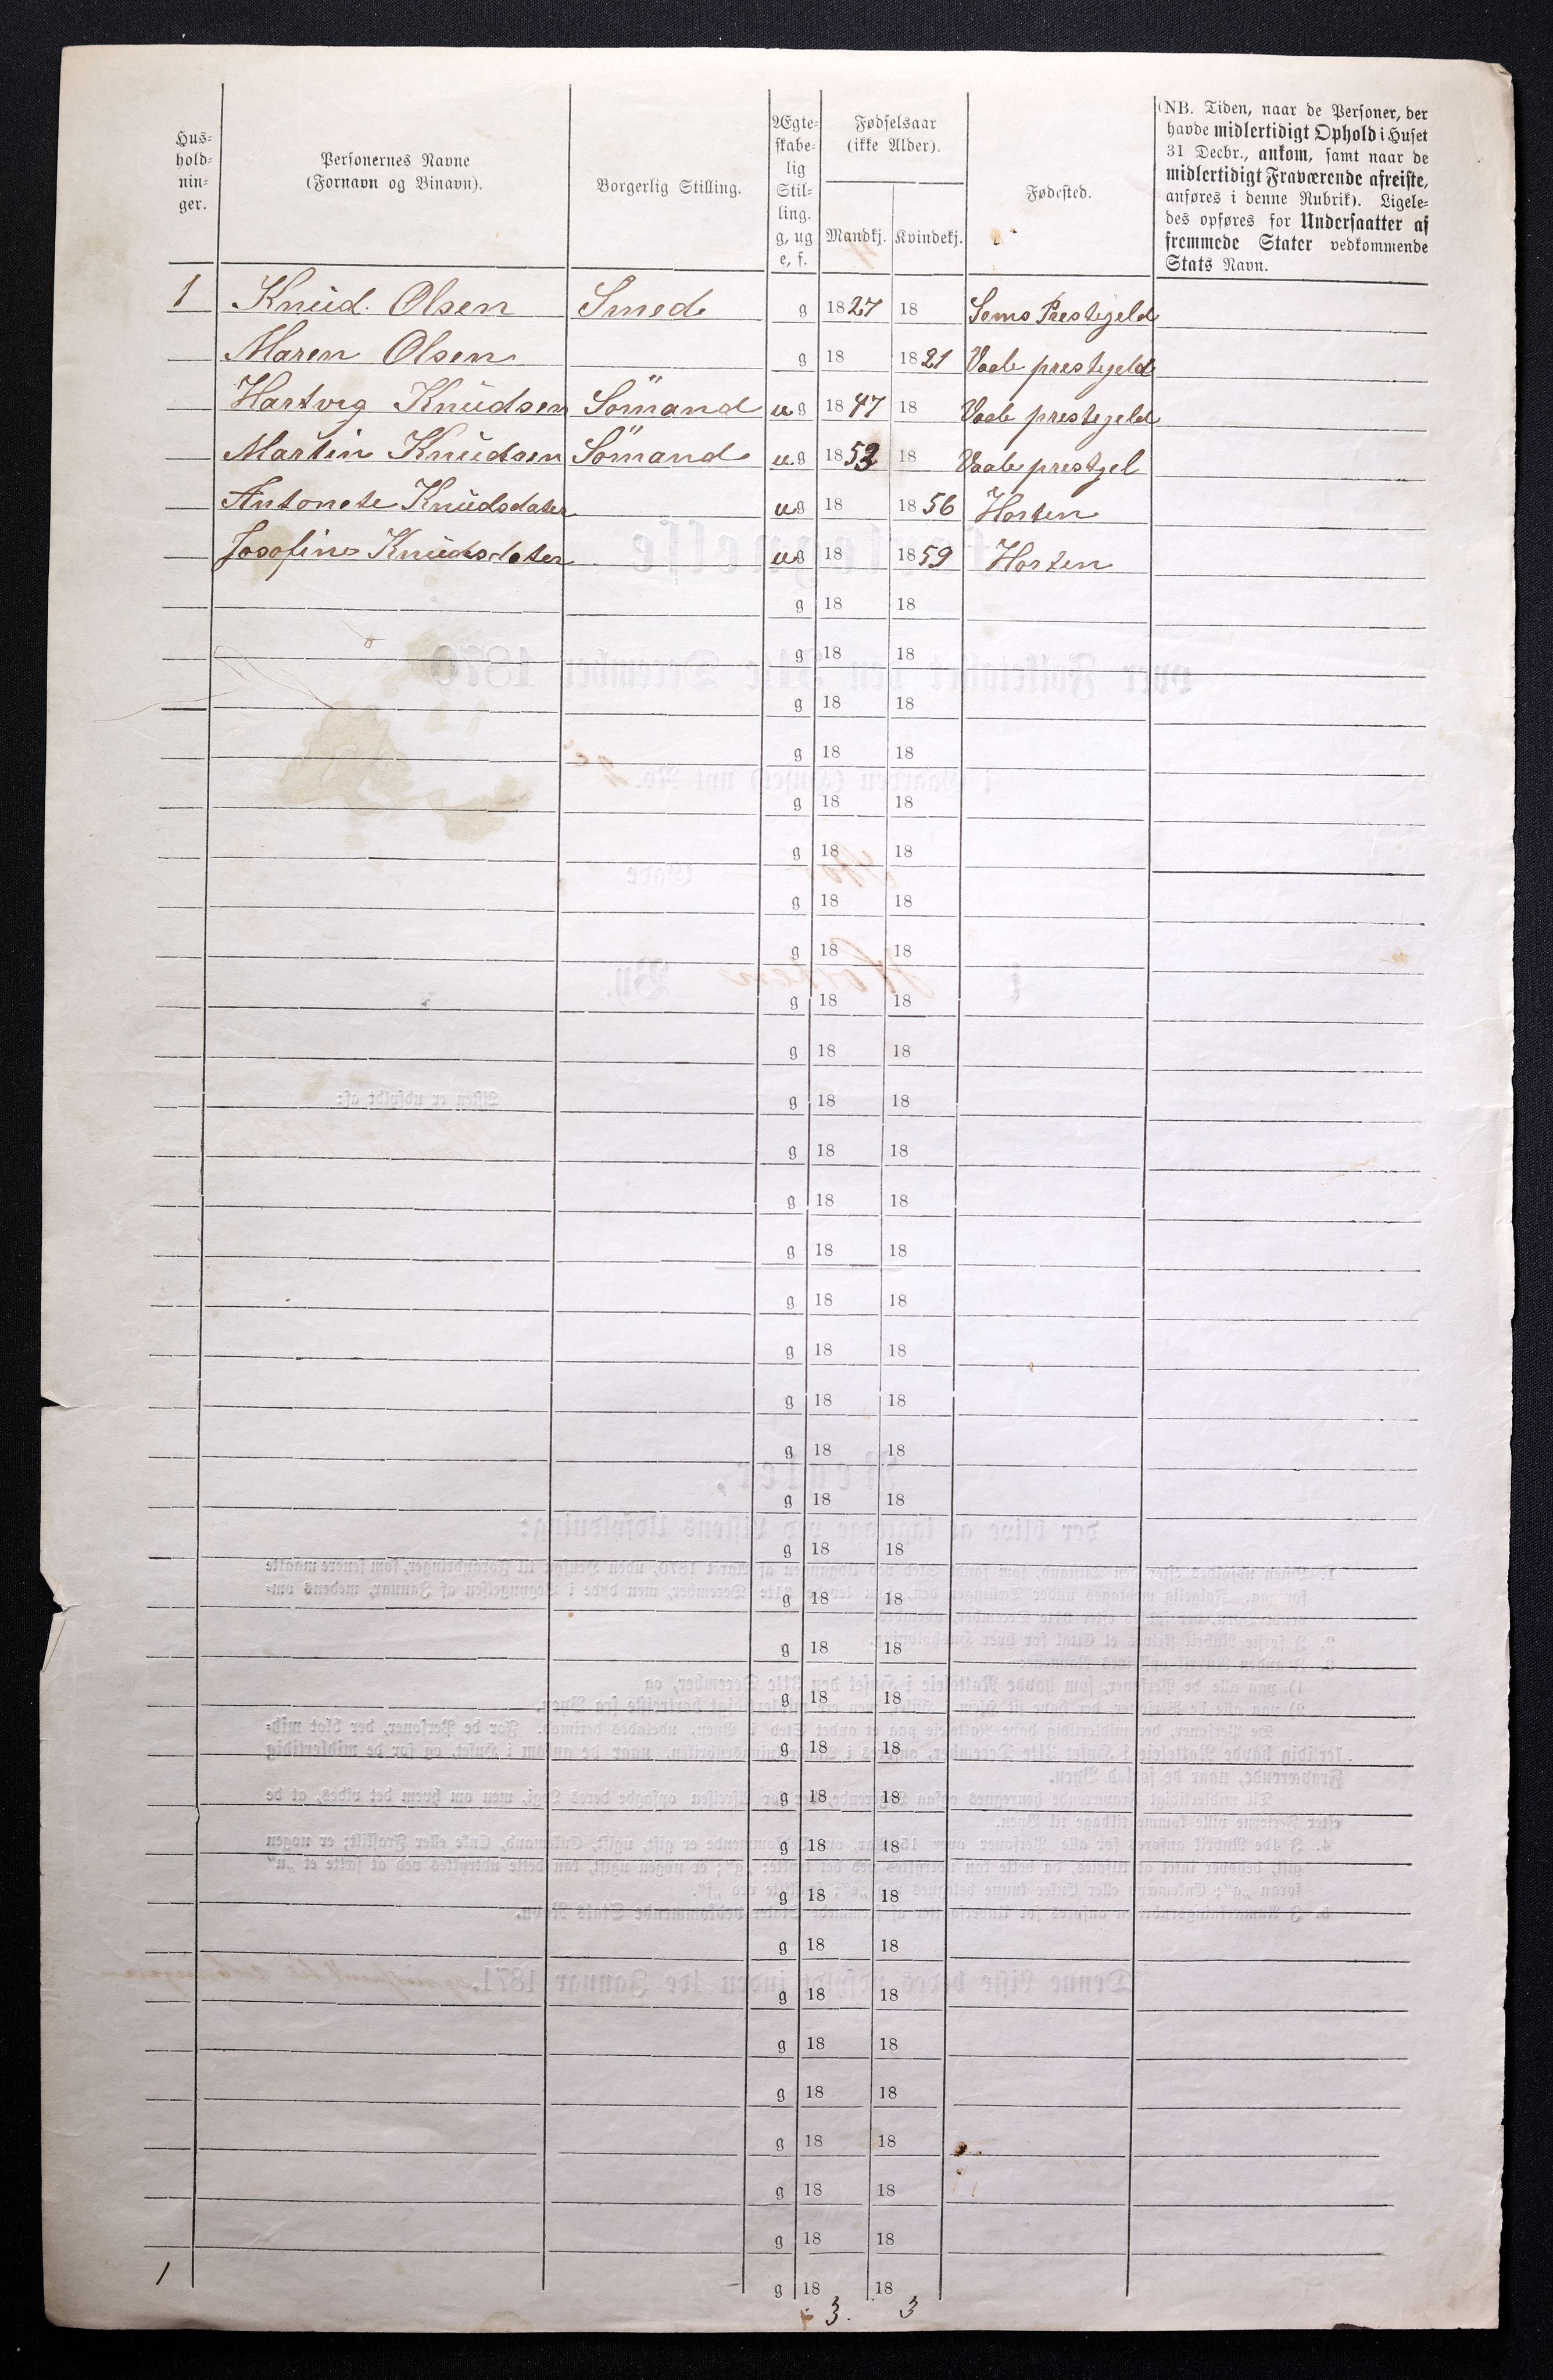 Hus-
hold-
nin-
ger.
Personernes Navne
(Fornavn og Binavn).
Borgerlig Stilling.
Ægte-
skabe-
lig
Stil-
ling.
g, ug
e, f.
Fødselsaar
(ikke Alder).
Mandkj. Kvindekj.
Fødested.
(NB. Tiden, naar de Personer, der
havde midlertidigt Ophold i Huset
31 Decbr., ankom, samt naar de
midlertidigt Fraværende afreiste,
anføres i denne Rubrik). Ligele-
des opføres for Undersaatter af
fremmede Stater vedkommende
Stats Navn.
1 Knud Olsen Smed g 1827 18 Sems Prestegeld
Maren Olsen g 18 1821 Vaale prestegeld
Hartvig Knudsen Sömand ug 1847 18 Vaale prestegeld
Martin Knudsen Sömand ug 1853 18 Vaale prestgel
Antonete Knudsdater ug 18 1856 Horten
Josefine Knudsdater ug 18 1859 Horten
g 18 18
g 18 18
g 18 18
g 18 18
g 18 18
g 18 18
g 18 18
g 18 18
g 18 18
g 18 18
g 18 18
g 18 18
g 18 18
g 18 18
g 18 18
g 18 18
g 18 18
g 18 18
g 18 18
g 18 18
g 18 18
g 18 18
g 18 18
g 18 18
g 18 18
g 18 18
g 18 18
g 18 18
g 18 18
g 18 18
g 18 18
g 18 18
g 18 18
g 18 18
g 18 18
1 3. 3